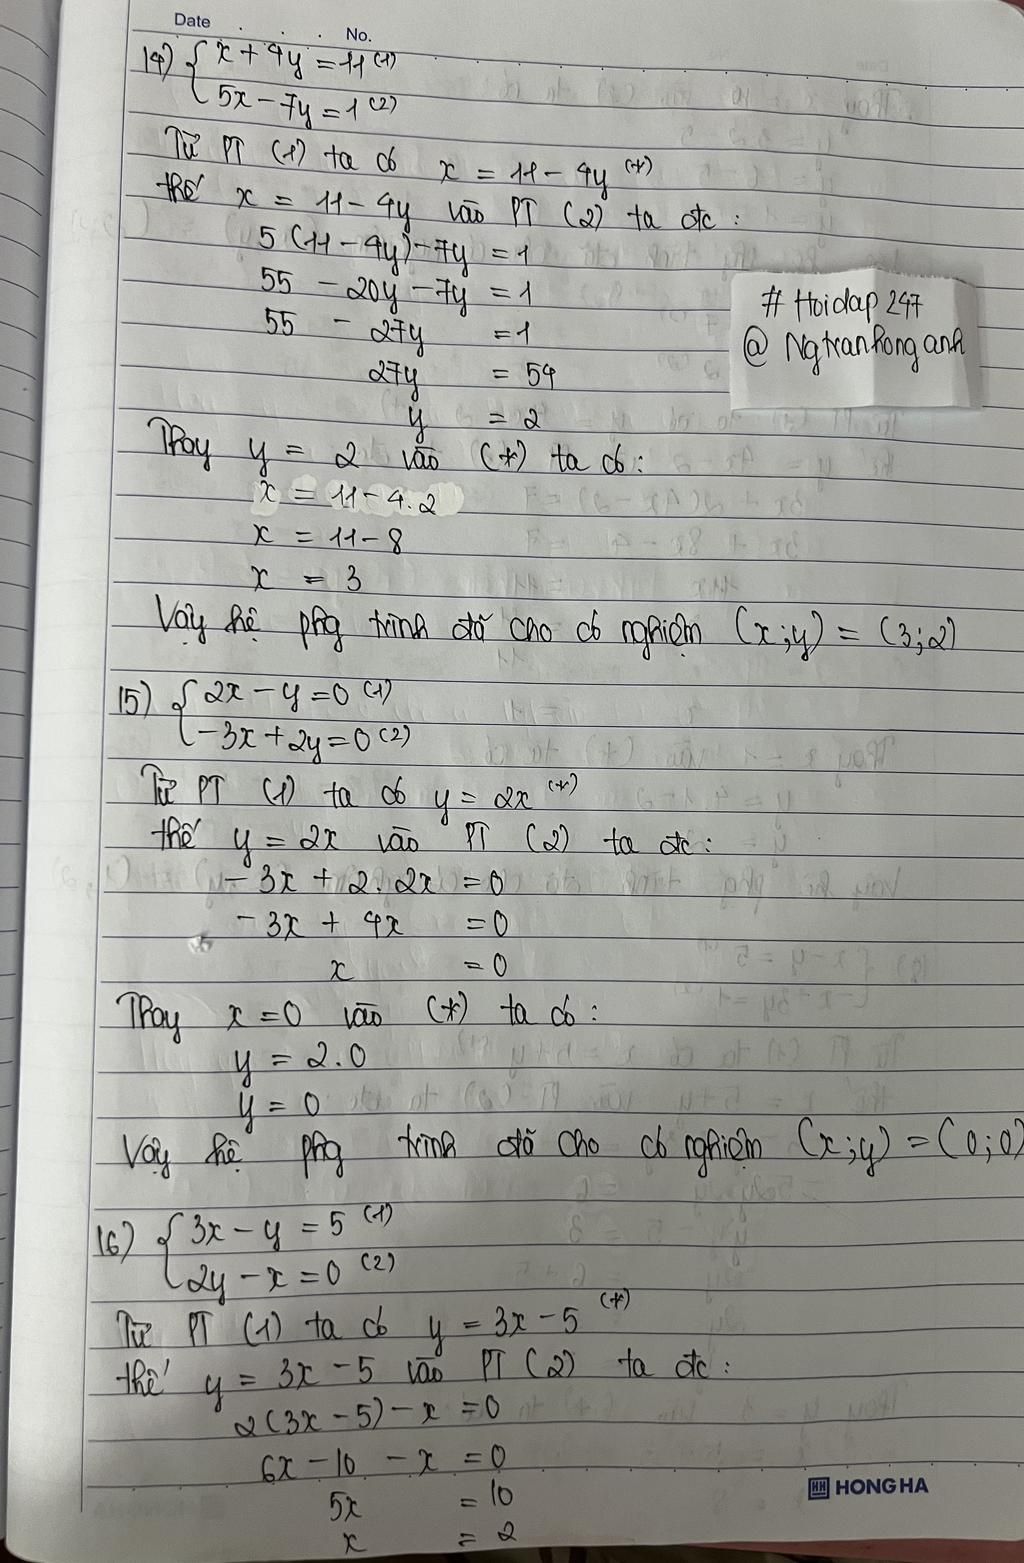 Date . . . No.
14) { x + 4y = 11 (1)
5x - 7y = 1 (2)
Từ PT (1) ta có x = 11 - 4y (*)
thế x = 11 - 4y vào PT (2) ta đc :
5 (11 - 4y) - 7y = 1
55 - 20y - 7y = 1
55 - 27y = 1
27y = 54
y = 2
Thay y = 2 vào (*) ta có :
x = 11 - 4.2
x = 11 - 8
x = 3
Vậy hệ phg trình đã cho có nghiệm (x ; y) = (3 ; 2)
# Hoidap 247
@ Ngtranhonganh
15) { 2x - y = 0 (1)
-3x + 2y = 0 (2)
Từ PT (1) ta có y = 2x (*)
thế y = 2x vào PT (2) ta đc :
-3x + 2. 2x = 0
-3x + 4x = 0
x = 0
Thay x = 0 vào (*) ta có :
y = 2.0
y = 0
Vậy hệ phg trình đã cho có nghiệm (x ; y) = (0 ; 0)
16) { 3x - y = 5 (1)
2y - x = 0 (2)
Từ PT (1) ta có y = 3x - 5 (*)
thế y = 3x - 5 vào PT (2) ta đc :
2(3x - 5) - x = 0
6x - 10 - x = 0
5x = 10
x = 2
HH HONG HA